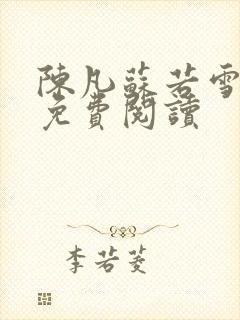 陳凡蘇若雪
免費閱讀
李若菱